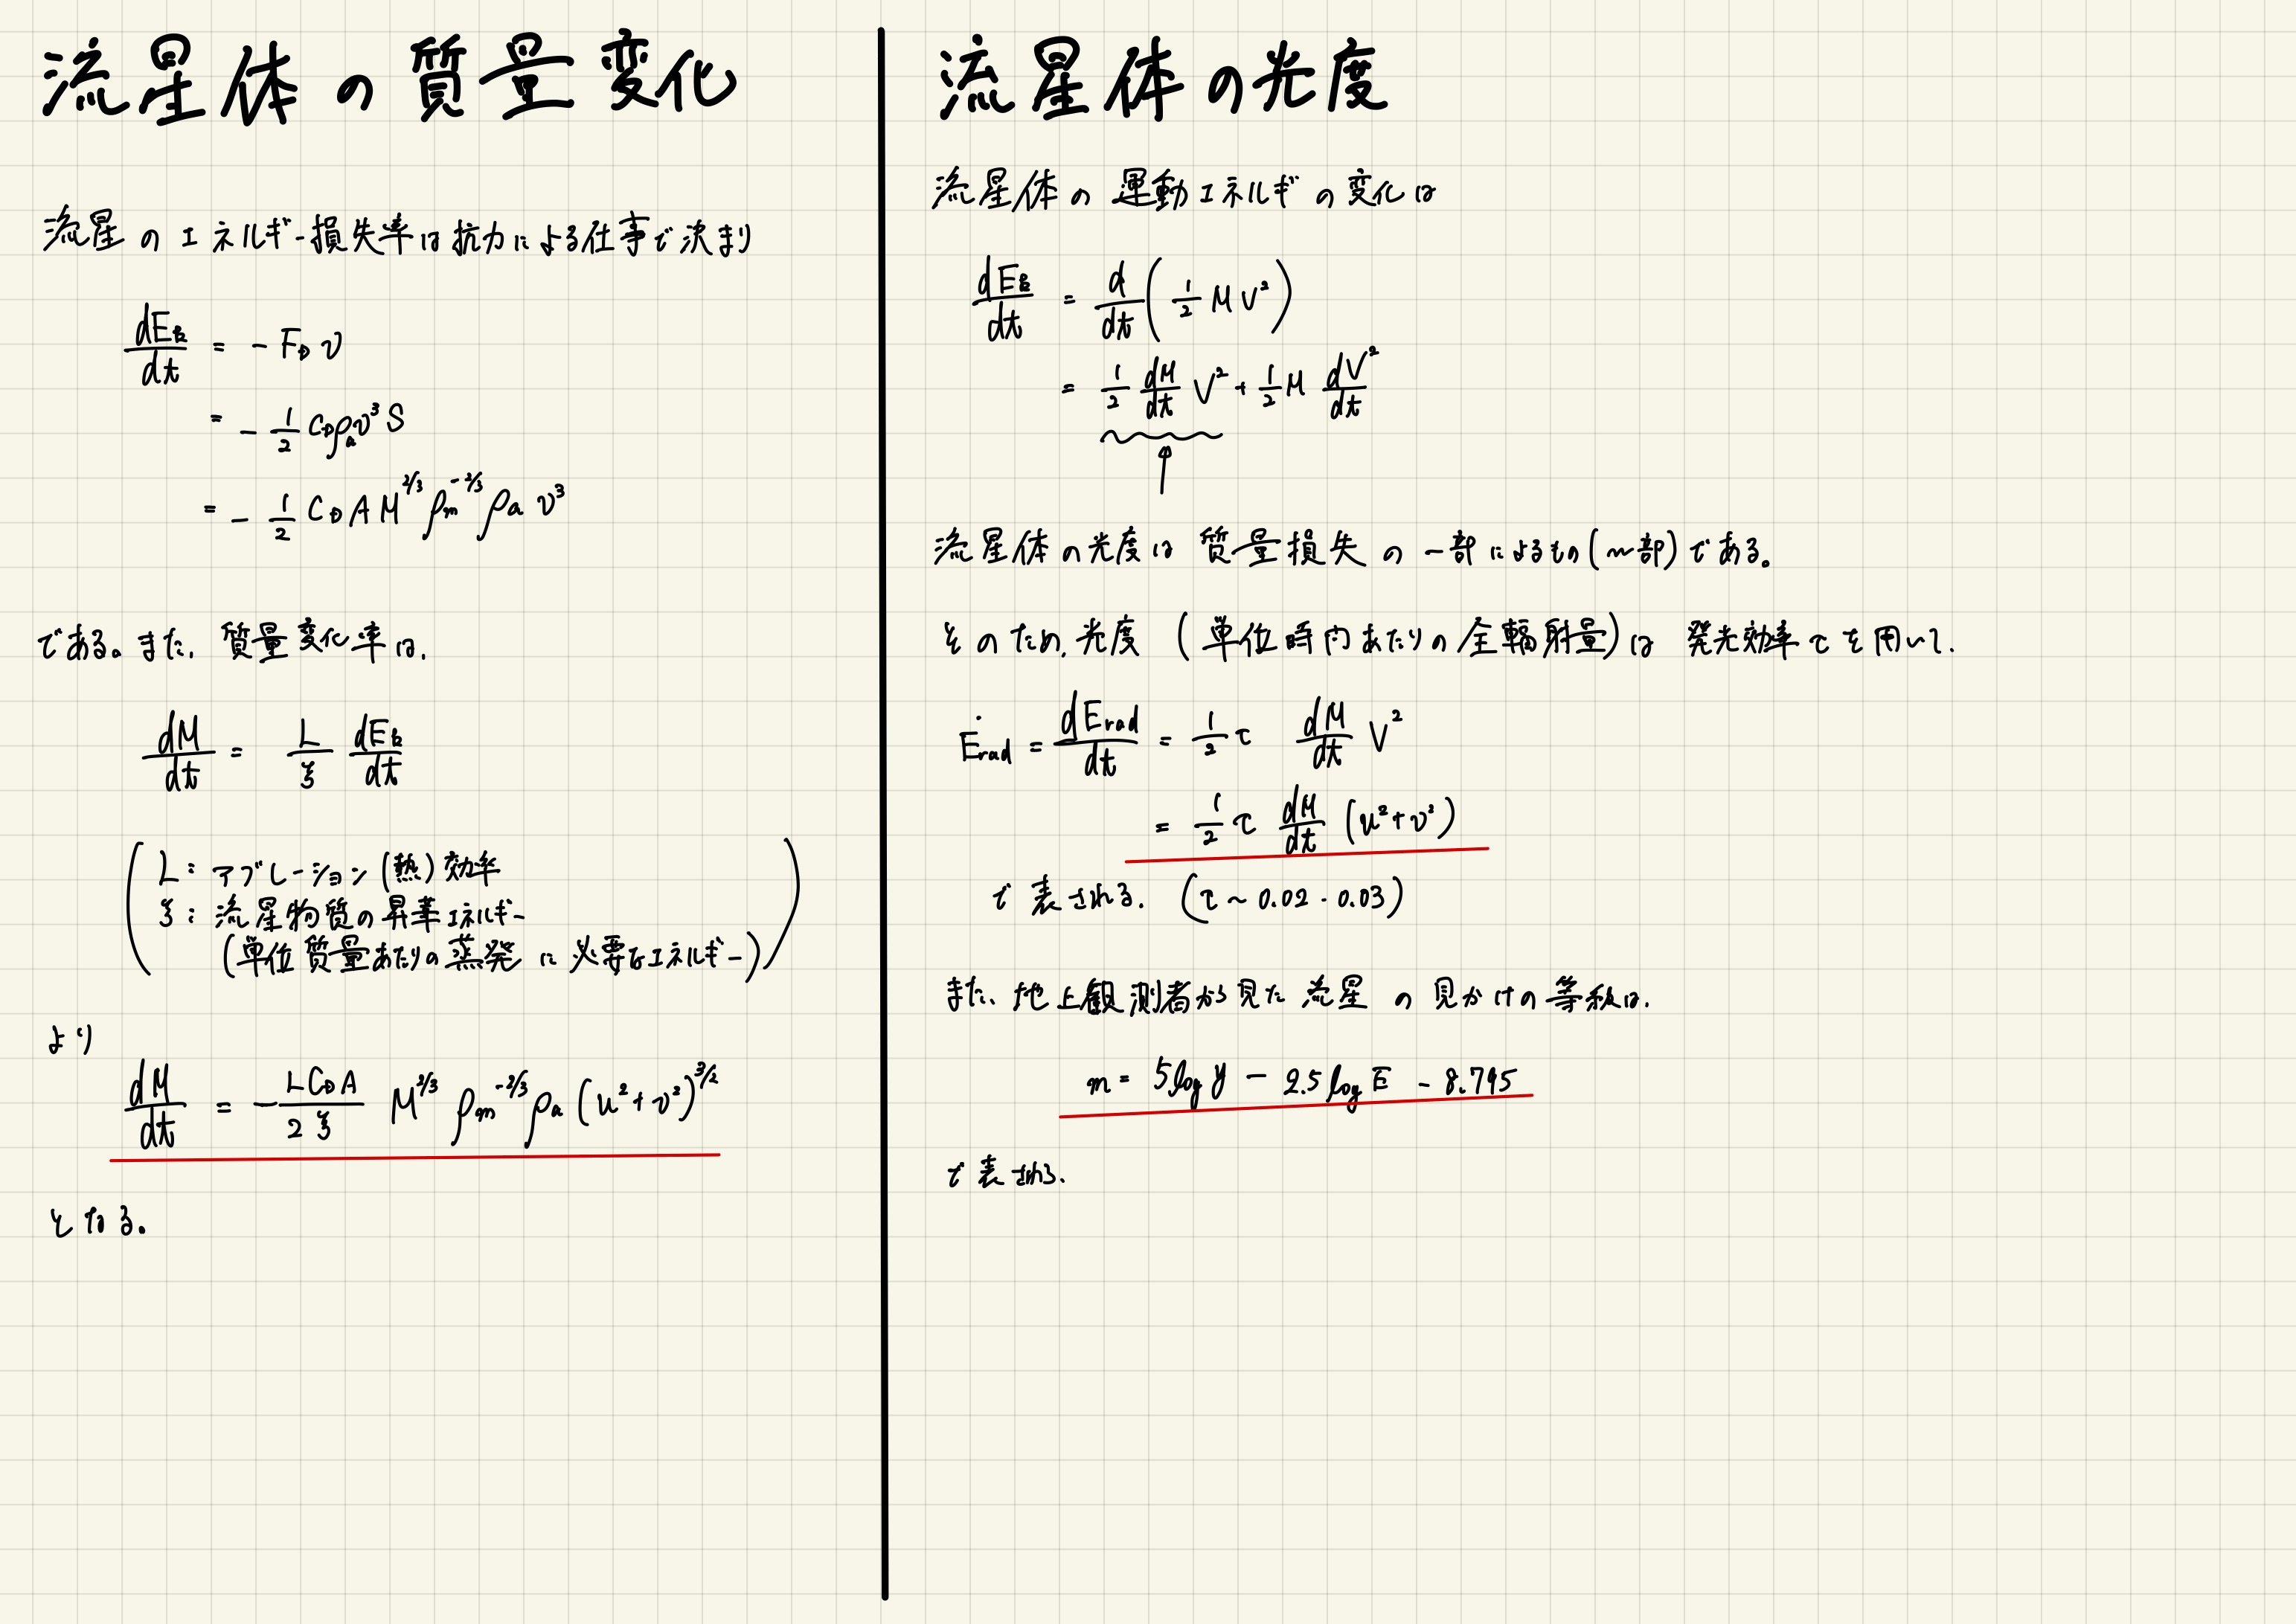 流星体の質量変化
流星のエネルギー損失率は抗力による仕事で決まり
dE_k/dt = - F_D v
= - 1/2 C_D ρ_a v³ S
= - 1/2 C_D A M^{2/3} ρ_m^{-2/3} ρ_a v³
である。また、質量変化率は、
dM/dt = L/ξ dE_k/dt
L: アブレーション(熱)効率
ξ: 流星物質の昇華エネルギー
(単位質量あたりの蒸発に必要なエネルギー)
より
dM/dt = - LC_DA/2ξ M^{2/3} ρ_m^{-2/3} ρ_a (u²+v²)^{3/2}
となる。
流星体の光度
流星体の運動エネルギの変化は
dE_k/dt = d/dt (1/2 M V²)
= 1/2 dM/dt V² + 1/2 M dV²/dt
流星体の光度は質量損失の一部によるもの(〜部)である。
そのため、光度 (単位時間あたりの全輻射量)は 発光効率τを用いて、
Ė_rad = dE_rad/dt = 1/2 τ dM/dt V²
= 1/2 τ dM/dt (u²+v²)
で表される. (τ ~ 0.02 - 0.03)
また、地上観測者から見た流星の見かけの等級は、
m = 5log y - 2.5 log E - 8.795
で表される.